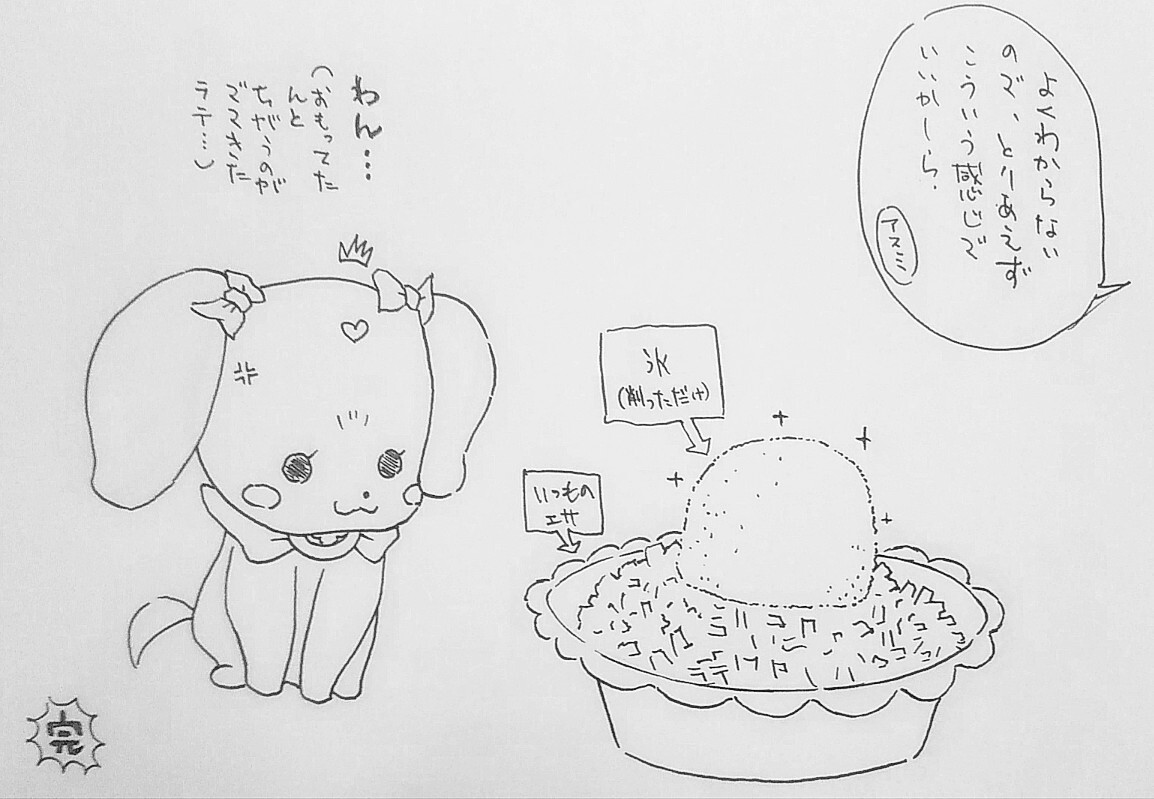 よくわからない
ので、とりあえず
こういう感じで
いいかしら。
アスミ
氷
(削っただけ)
いつもの
エサ
わん…
(おもってた
んと
ちがうのが
でてきた
ラテ…)
完